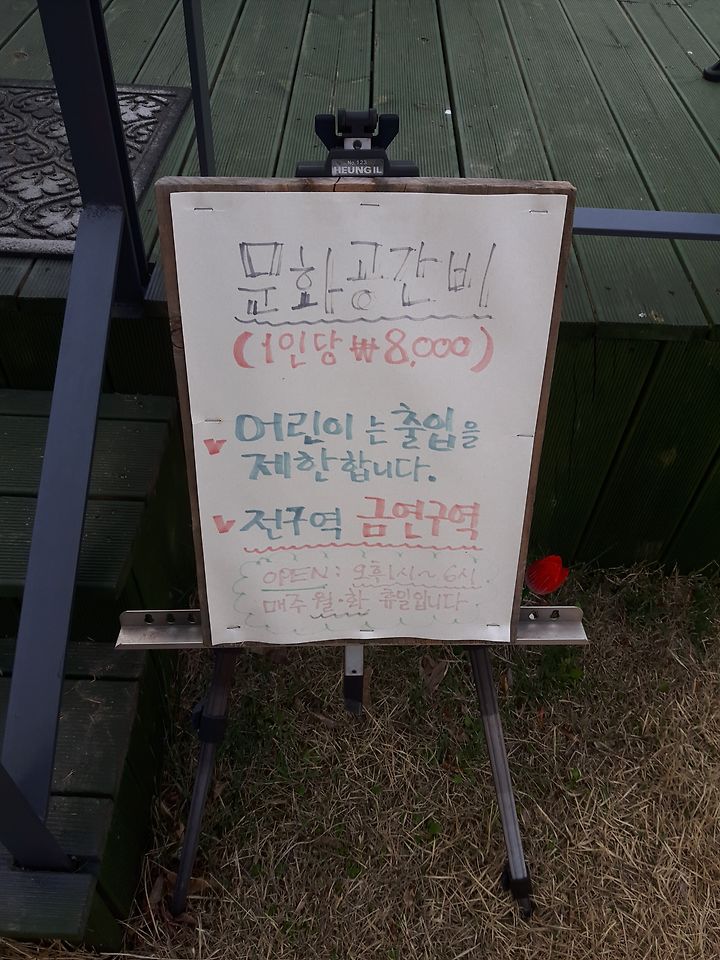 No.123
HEUNG IL
문화공간비
(1인당 ₩8,000)
v 어린이는 출입을
제한합니다.
v 전구역 금연구역
OPEN: 오후1시~6시.
매주 월·화 휴일입니다